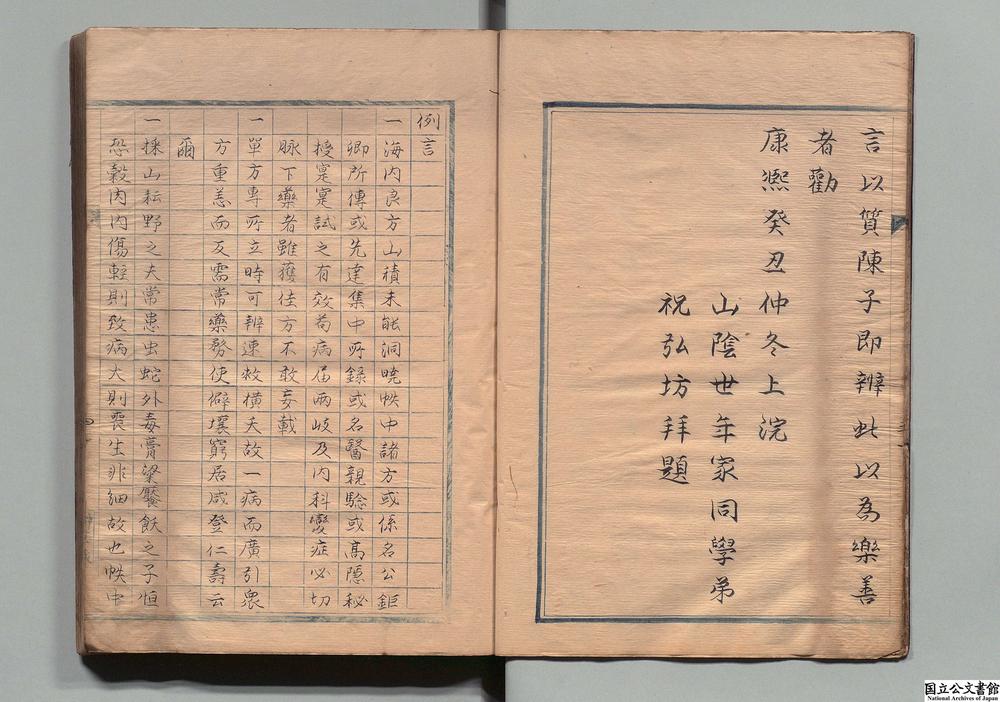 言以質陳子即辨此以為樂善
者勸
康熙癸丑仲冬上浣
山陰世年家同學弟
祝弘坊拜題
例言
一海内良方山積未能洞曉帙中諸方或係名公鉅
卿所傳或先達集中所錄或名醫親驗或高隱秘
授寔寔試之有效苟病届兩岐及内科變症必切
脉下藥者雖獲佳方不敢妄載
一單方專所立時可辨速救橫夭故一病而廣引衆
方重恙而反需常藥務使僻壤窮居咸登仁壽云
爾
一採山耘野之夫常患虫蛇外毒膏粱饜飫之子恒
恐穀肉内傷輕則致病大則喪生非細故也帙中
国立公文書館
National Archives of Japan